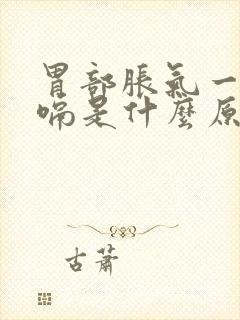 胃部脹氣一
嗝是什麼原
古蕭